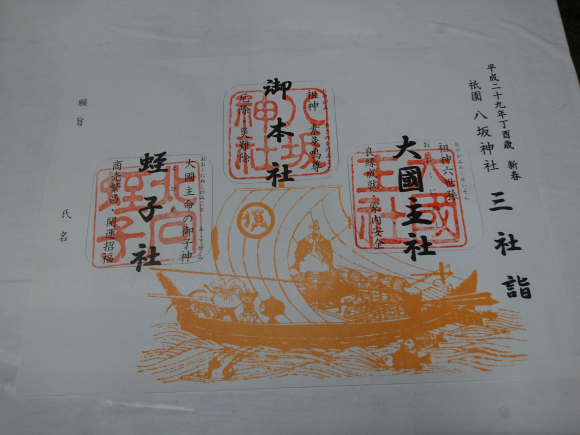 平成二十九年丁酉歳 新春
祇園 八坂神社 三社詣
大國主社
祖神六世孫
良縁成就・家内安全
御本社
祖神 素戔嗚尊
厄除・災難除
八坂神社
蛭子社
大國主命の御子神
商売繁昌・開運招福
願旨
氏名